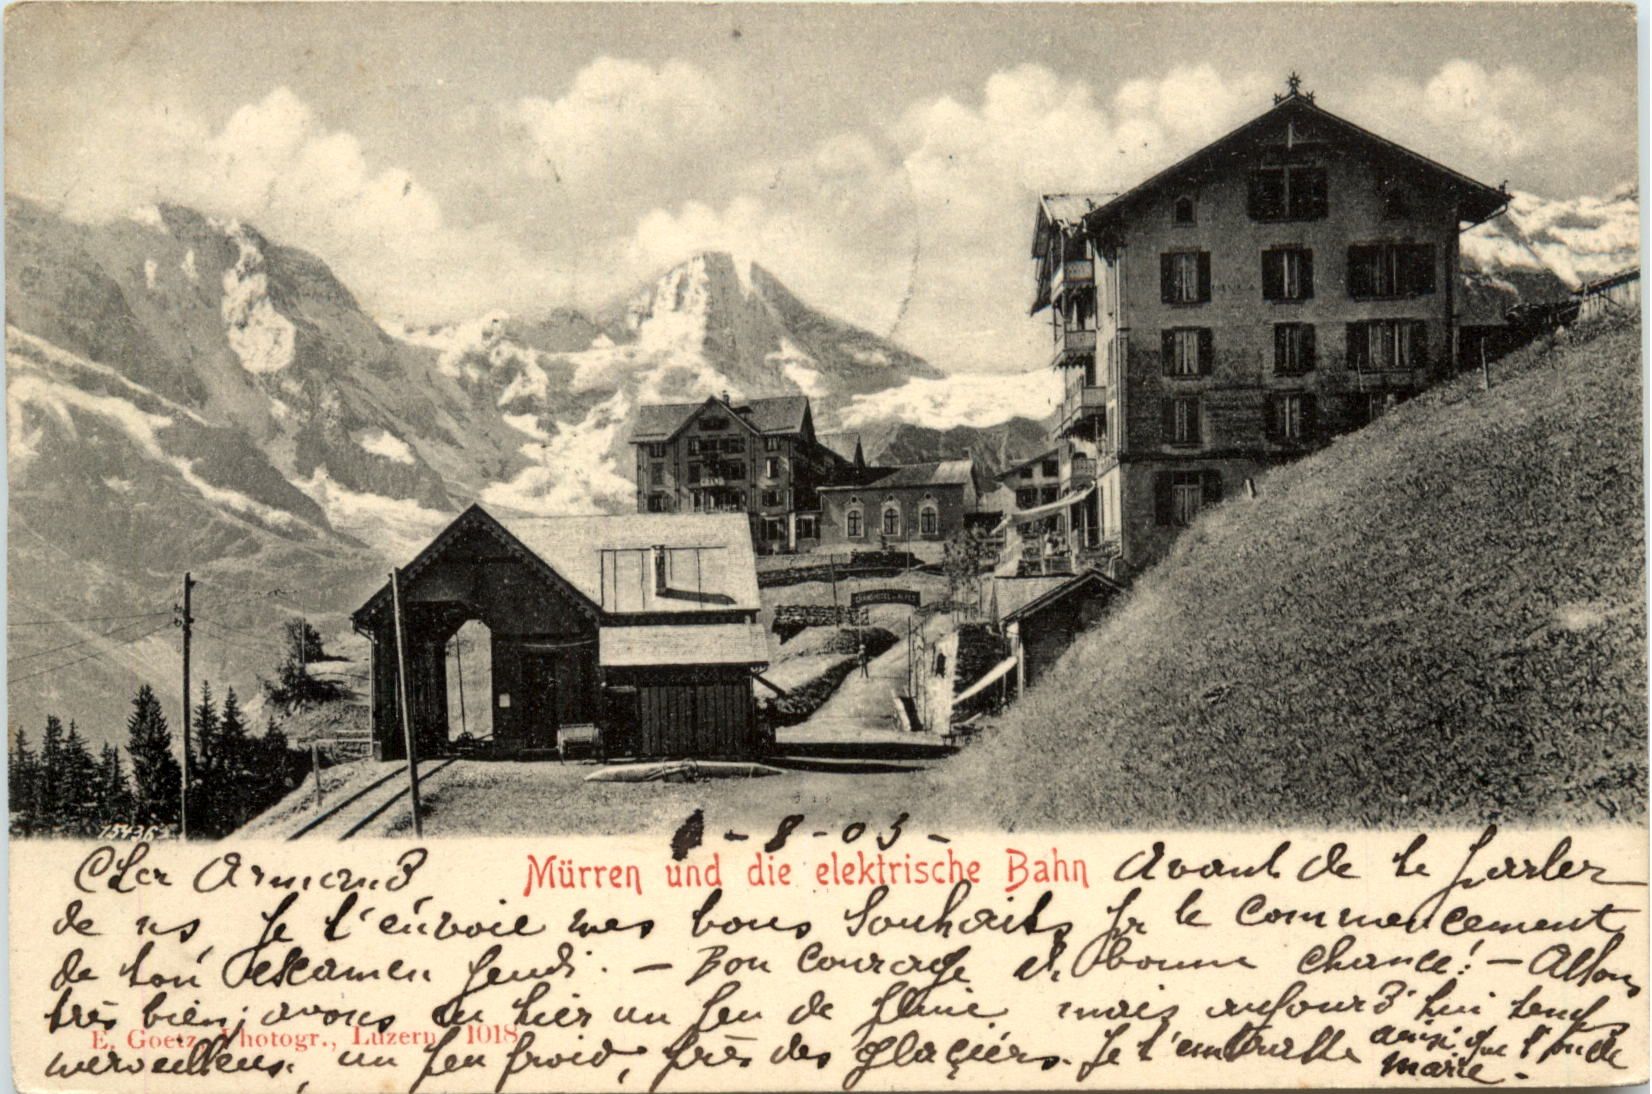 GRAND HOTEL des ALPES
15436
-8-03-
Mürren und die elektrische Bahn
Cher Armand Avant de te parler
de ns, je t'envoie mes bons souhaits pr le commencement
de ton examen jeudi. - Bon courage et bonne chance! - Allons
très bien; avons eu hier un peu de pluie mais aujourd'hui temps
E. Goetz, Photogr., Luzern 1018
merveilleux, un peu froid, près des glaçiers. Je t'embrasse ainsi que l'oncle
Marie -